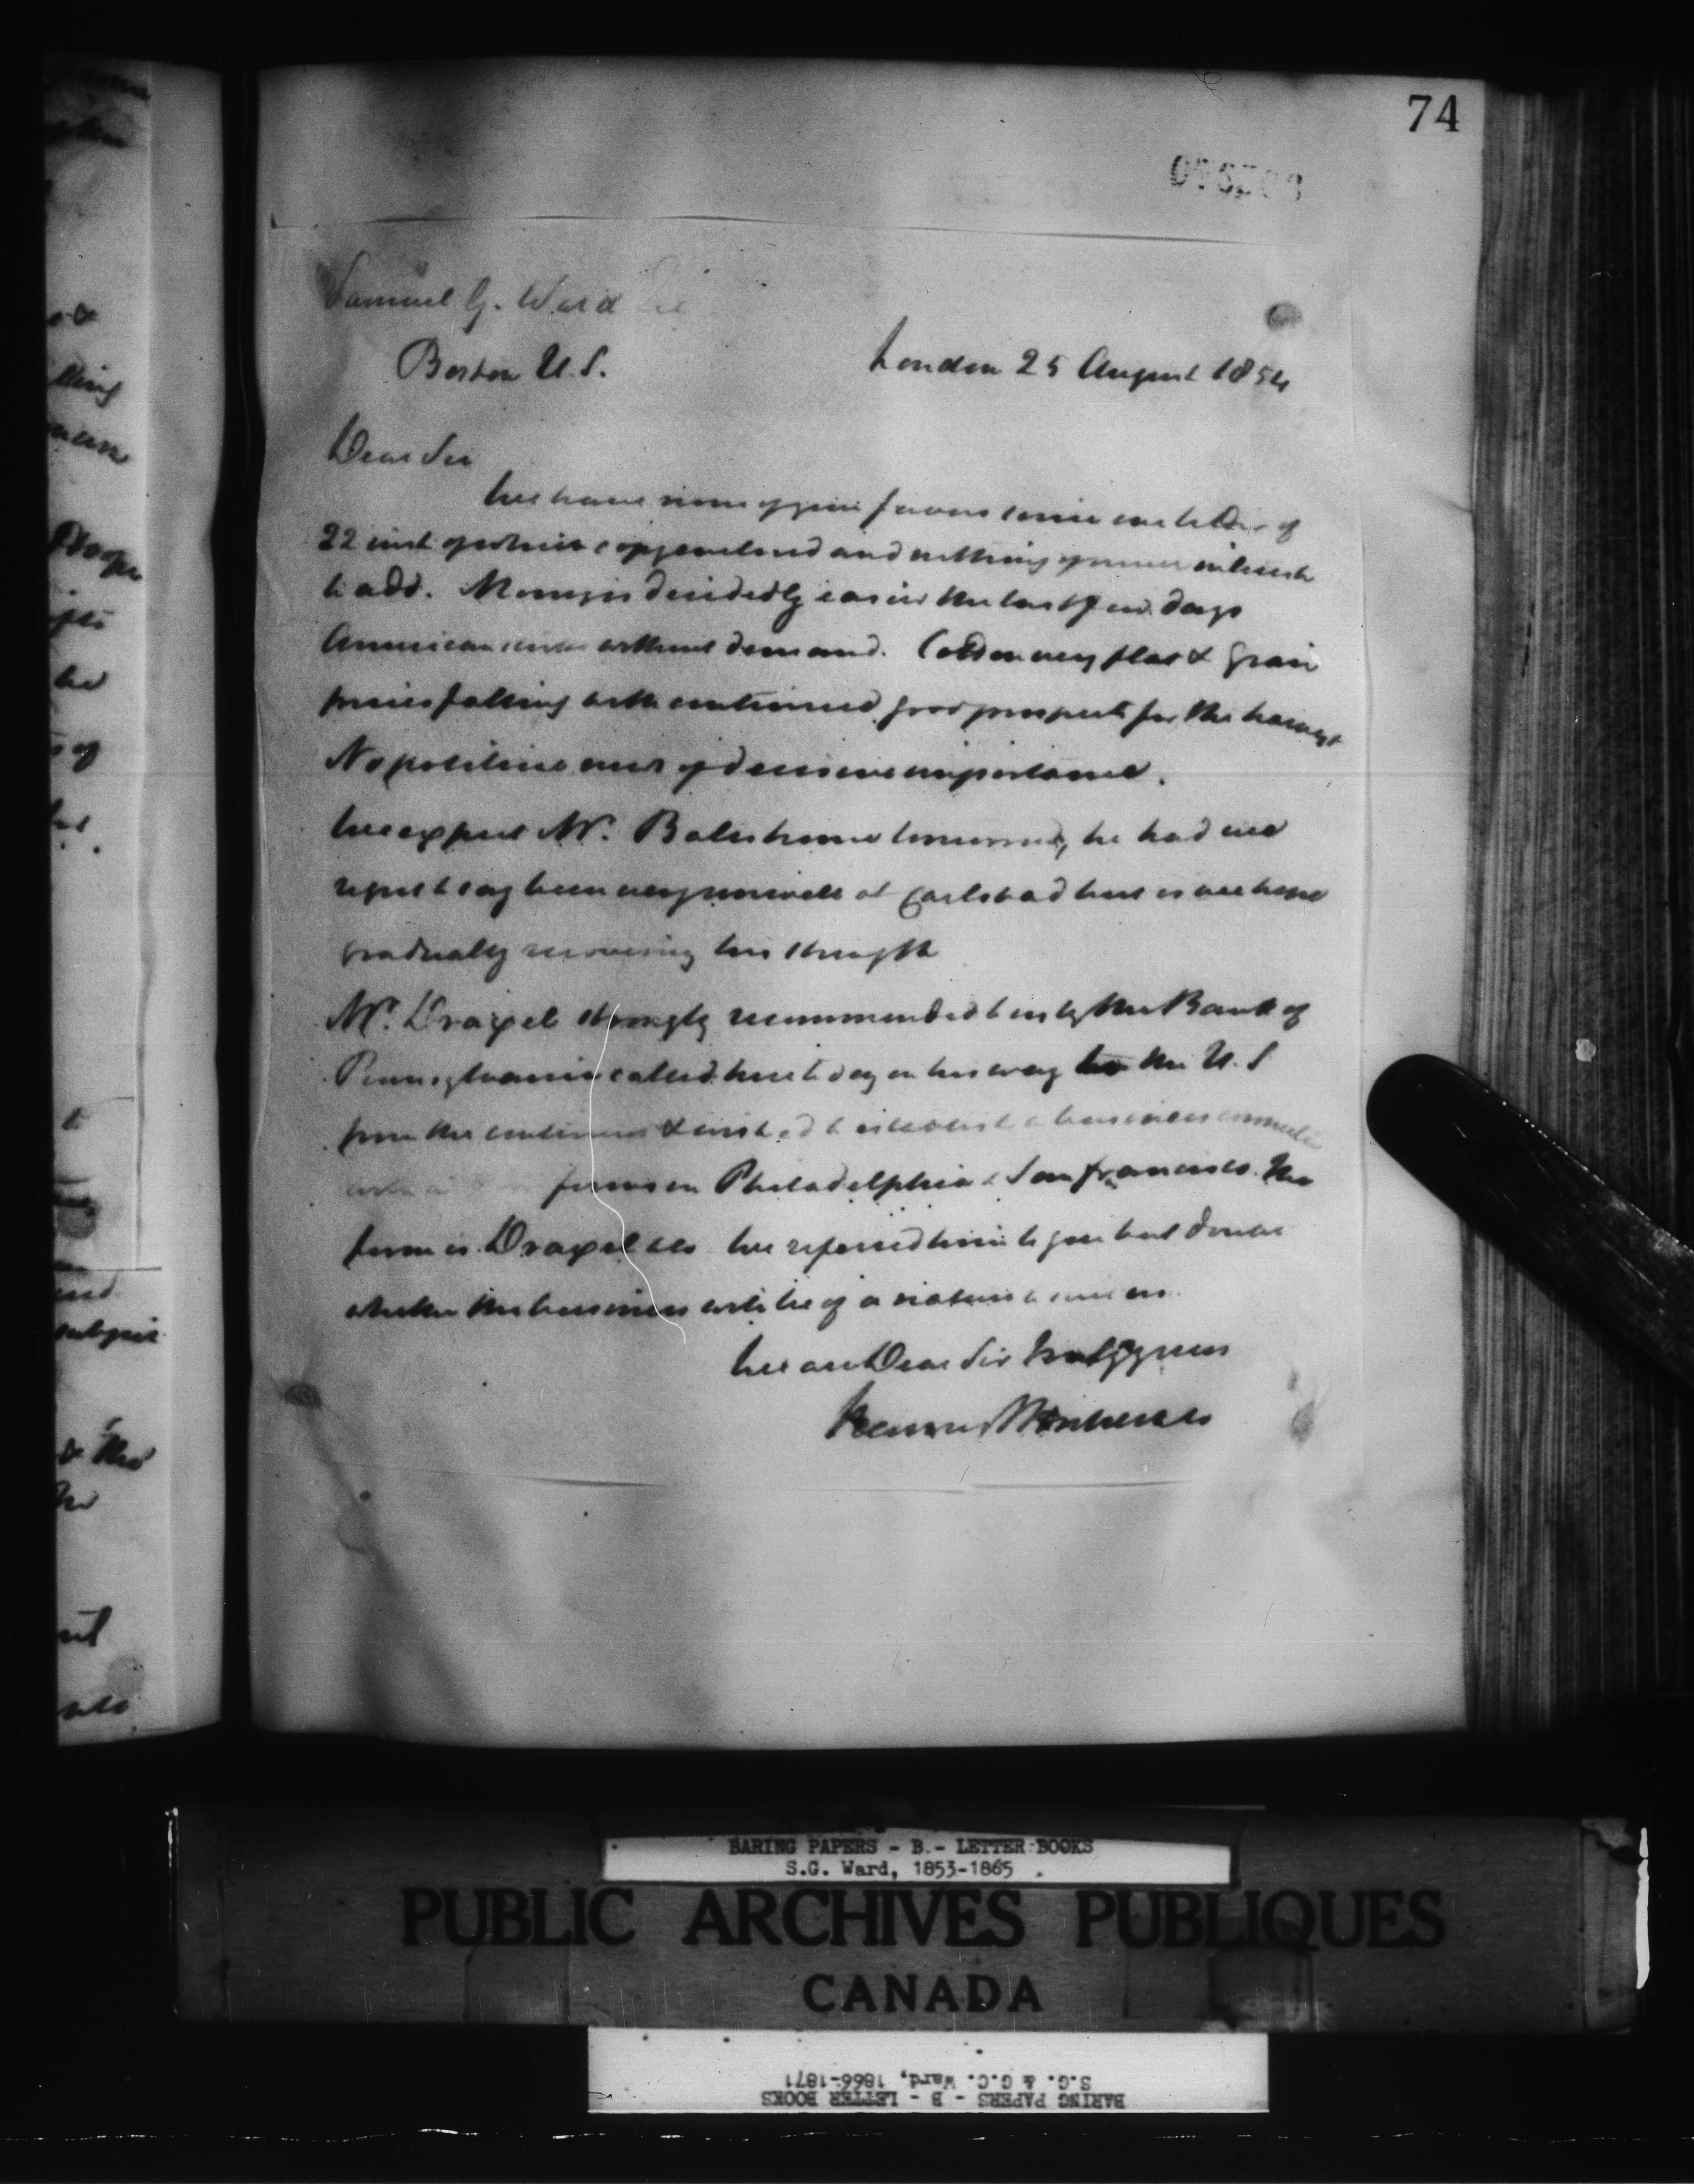 74
Samuel G. Ward
Boston U.S.
London 25 August 1854
Dear Sir
We have none of your favors since our letter of
22 inst of which copy enclosed and nothing of much interest
to add. Money is decidedly easier the last few days
American without demand. Cotton very flat & Grain
prices falling with continued good prospects for the harvest
No political news of decisive importance.
We expect Mr. Bates home tomorrow, he had we
regret to say been very unwell at Carlsbad but is we hope
gradually recovering his strength
Mr. Drexel strongly recommended to us by the Bank of
Pennsylvania called here to day on his way to the U.S
from the continent & wished to establish a business
firms in Philadelphia & San Francisco. The
firm is Drexel & Co We referred him to you but doubt
whether the business will be of a nature to suit us.
We are Dear Sir truly yours
BARING PAPERS - B - LETTER BOOKS
S.G. Ward, 1853-1865
PUBLIC ARCHIVES PUBLIQUES
CANADA
BARING PAPERS - B - LETTER BOOKS
S.G. & G.C. Ward, 1866-1871